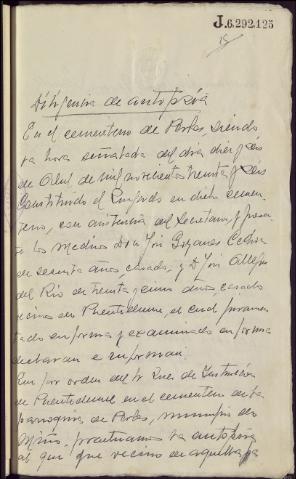 J.6.292.125
15
Diligencia de autopsia
En el cementerio de Perbes, siendo
la hora señalada del día diez y seis
de Abril de mil novecientos treinta y seis
Constituido el Juzgado en dicho cemen
terio, con asistencia del Secretario, y presen
te los medicos D. José
de sesenta años, casado, y D. José
del Rio de treinta y cinco años, casado
vecinos de Puentedeume, el cual juramen
tado en forma y examinado en forma
declaran e informan:
Que por orden del Sr Juez de Instruccion
de Puentedeume en el cementerio de la
parroquia de Perbes, municipio de
Miño, practicamos la autopsia
al que fue vecino de aquella pa